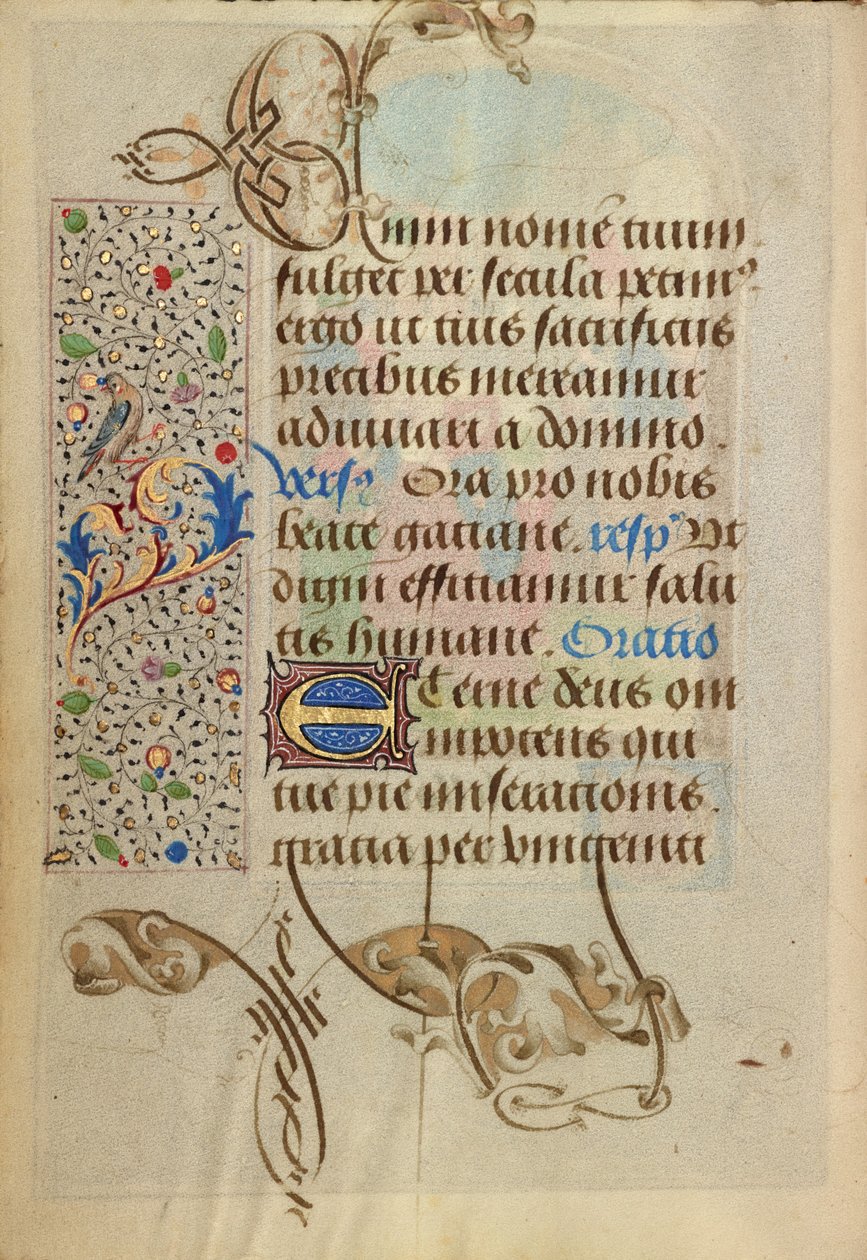 nomē tuum
fulget per secula petim⁹
ergo ut tuis sacrificiis
precibus mereamur
adiuuari a domino.
vers⁹ Ora pro nobis
beate gatiane. resp⁹ Ut
digni efficiamur salu
tis humane. Oratio
Eterne deus om
nipotens qui
tue pie miseracionis.
gratia per vinginti